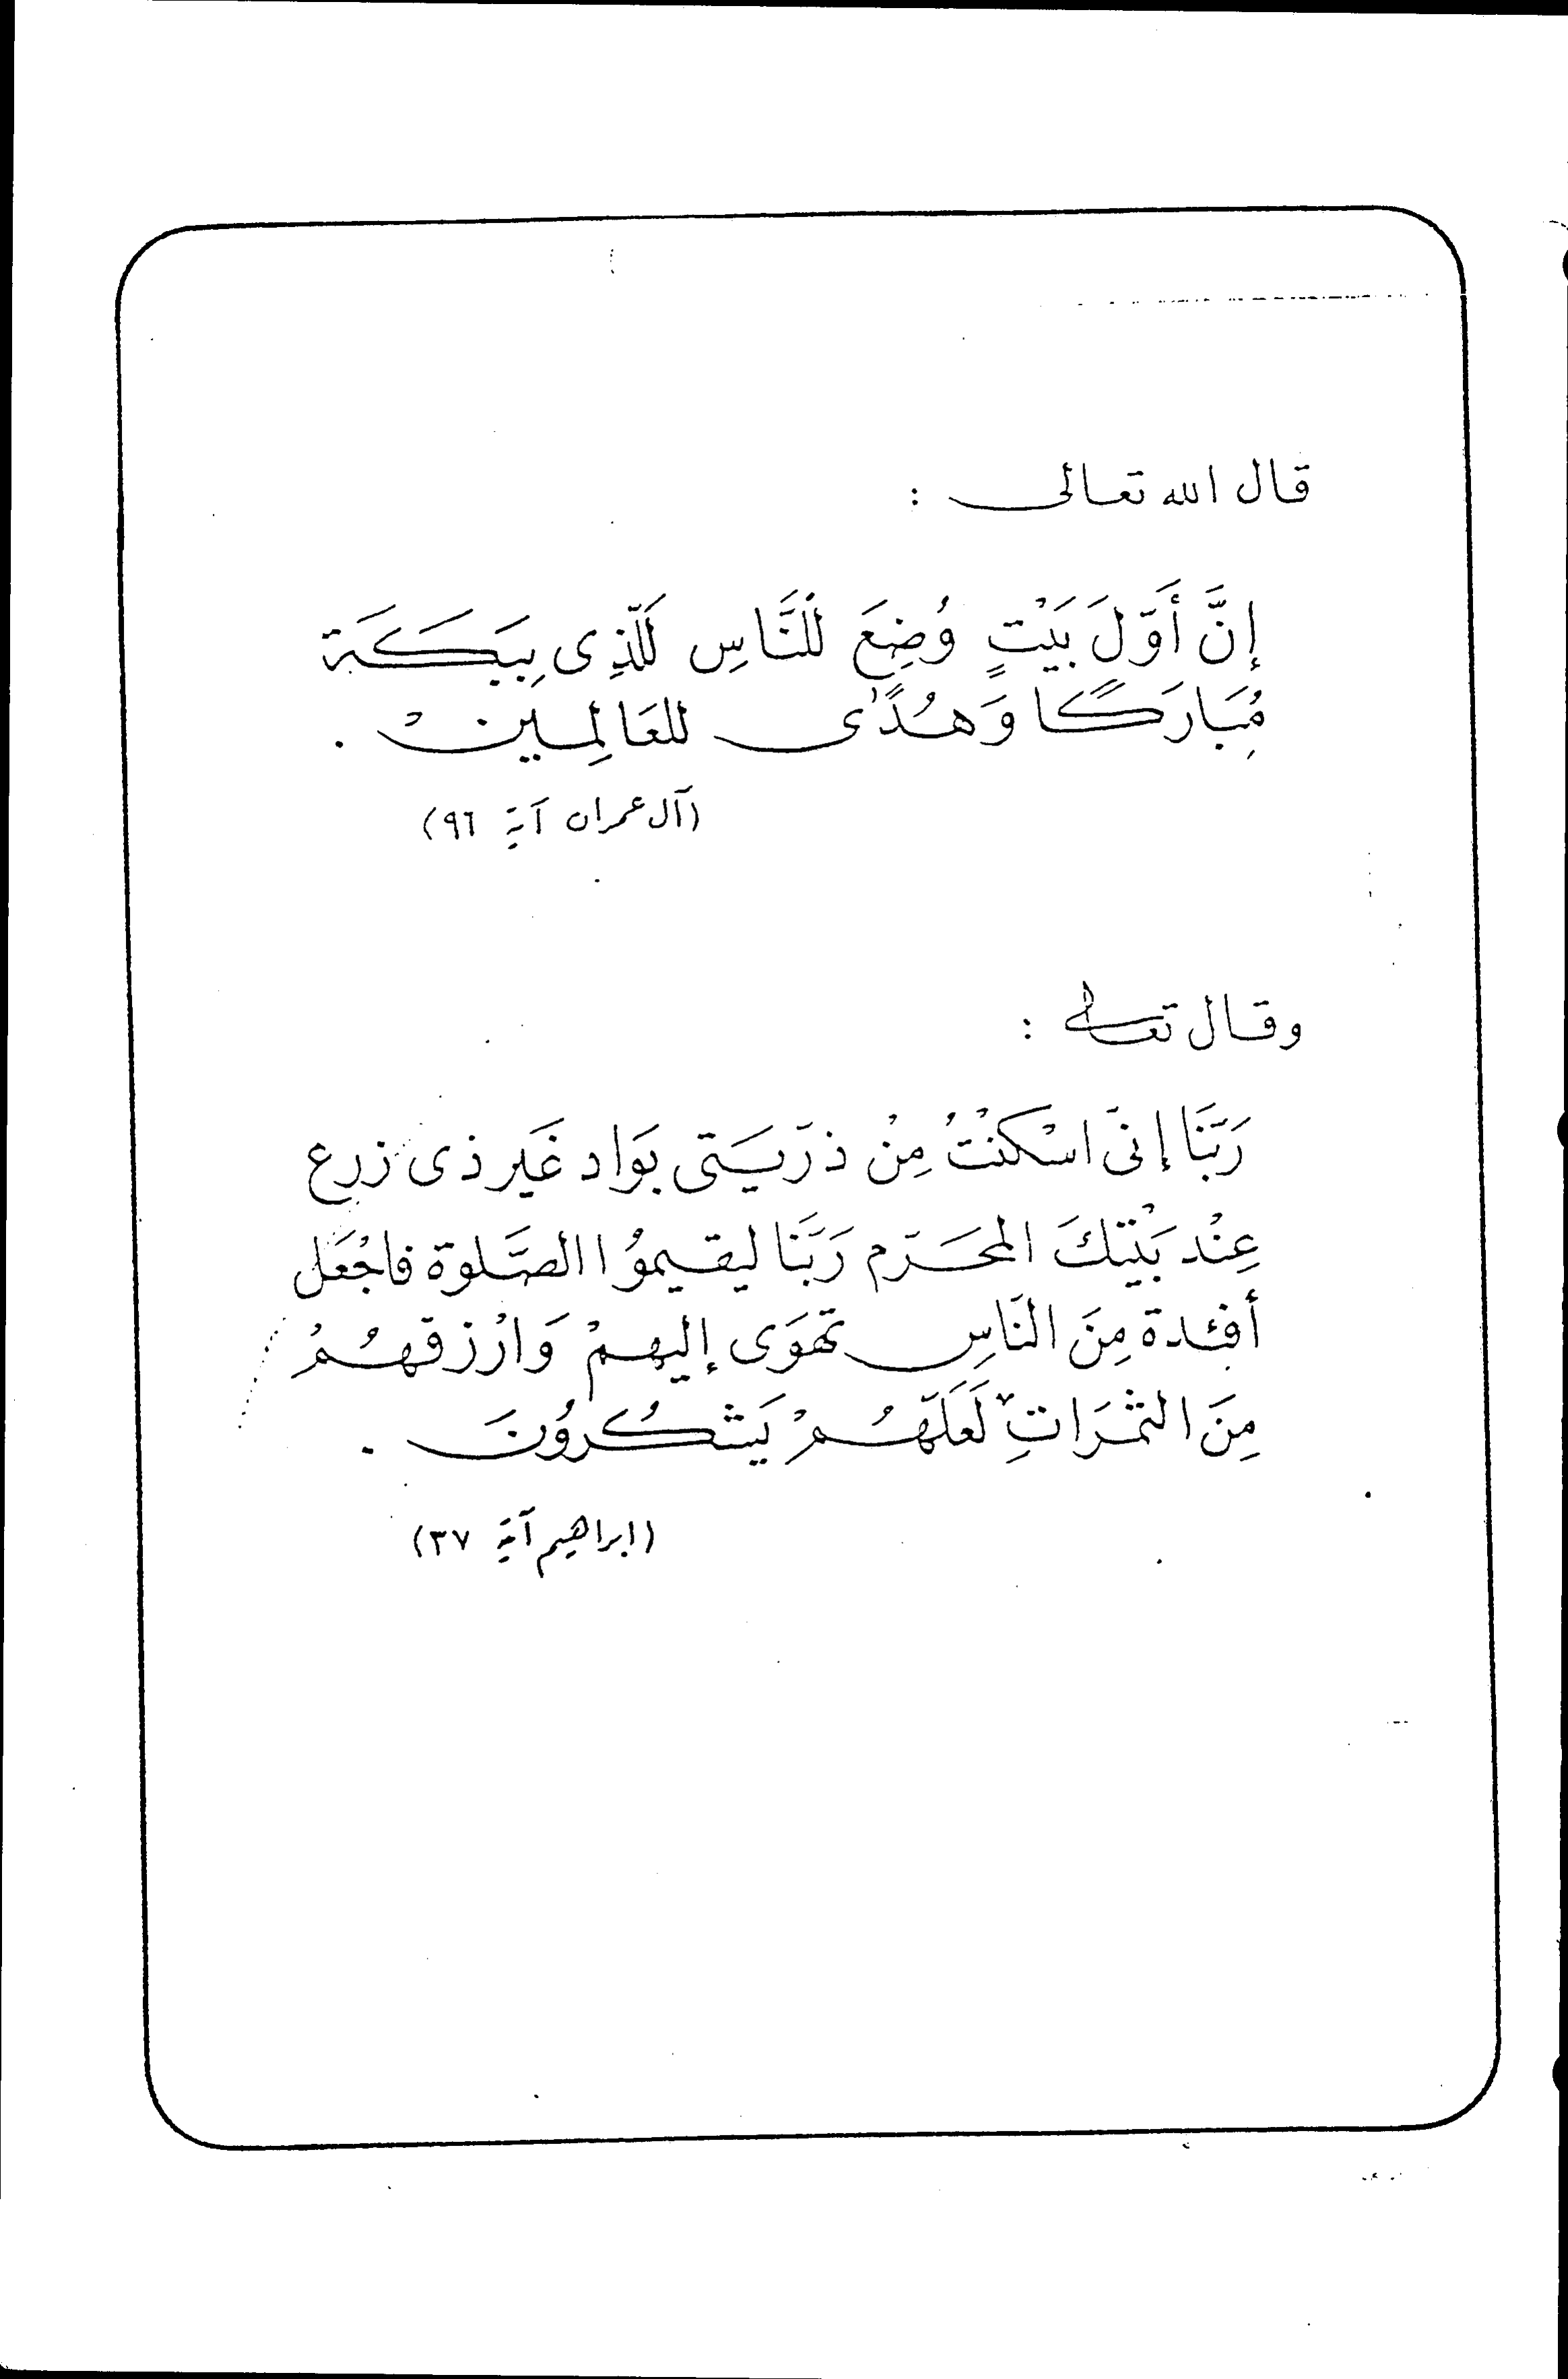 قال الله تعالى :
إِنَّ أَوَّلَ بَيْتٍ وُضِعَ لَلنَّاسِ لَلَّذِى بِبَكَة
مُبَارَكًا وَهُدًى للعَالِمِين .
(آل عمران آية ٩٦)
وقال تعالى :
رَبَّنَا إنىَ اسْكنْتُ مِنْ ذرَيَتى بوَاد غَير ذى زرع
عِنْد بَيْتكَ المحَرَم رَبَّنَا ليقيموُا الصَّلوة فاجْعَل
أفئدة مِنَ النَاسِ تهوَى إليهمْ وَارْزقهُمْ
مِنَ الثمَرَاتِ لَعَلَهُمْ يَشكُروُنَ .
(ابراهيم آية ٣٧)